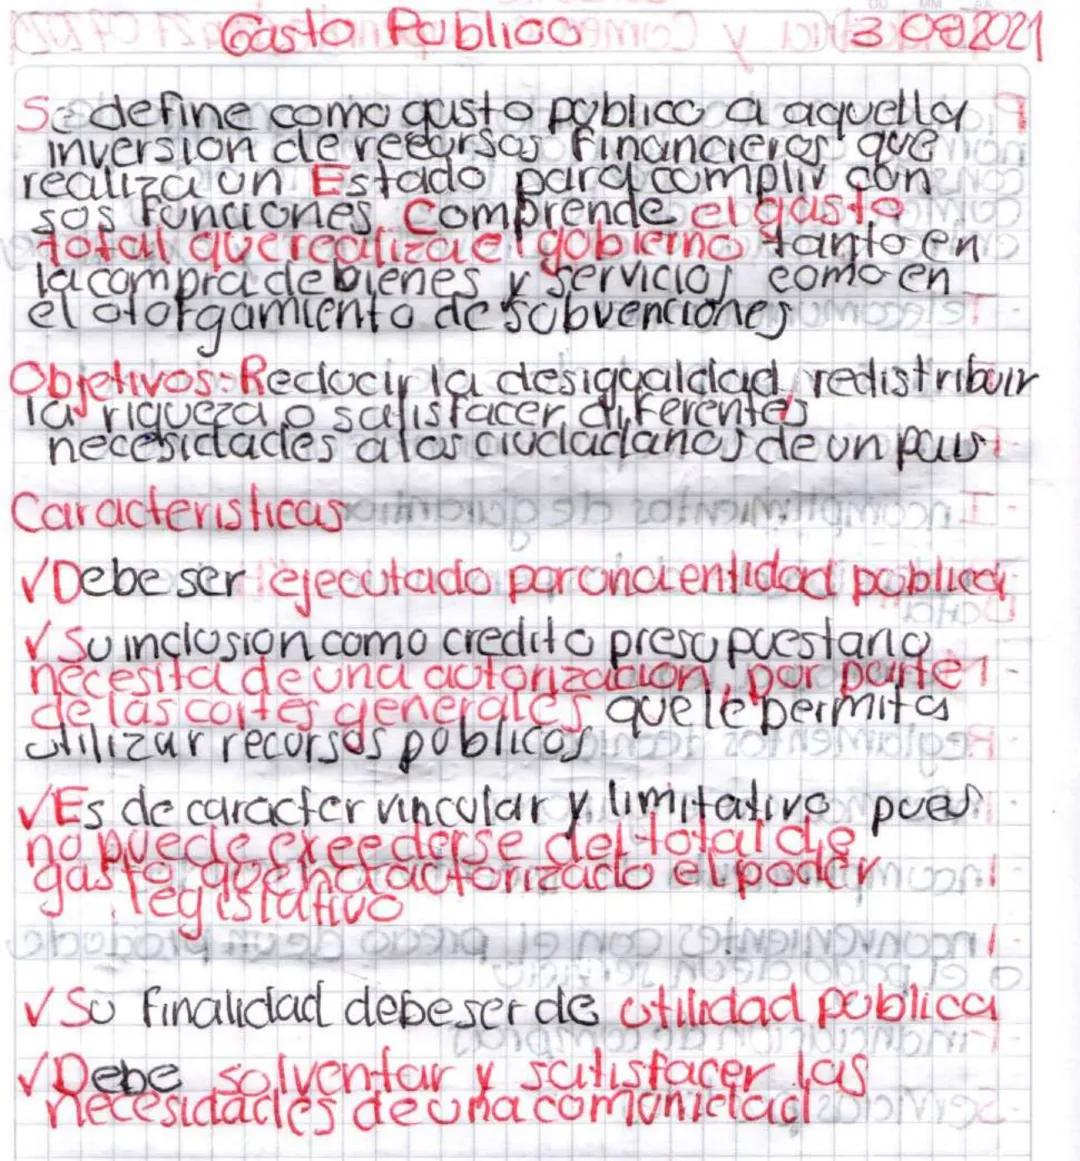 Gasto Publico 3 08 2021
Se define como gasto publico a aquella
inversion de recursos financieros que
realiza un Estado para cumplir con
sus funciones. Comprende el gasto
total que realiza el gobierno tanto en
la compra de bienes y servicios como en
el otorgamiento de subvenciones
Objetivos: Reducir la desigualdad, redistribuir
la riqueza o satisfacer diferentes
necesidades a los ciudadanos de un pais
Caracteristicas
✓Debe ser ejecutado por una entidad publica
✓ Su inclusion como credito presupuestario
necesita de una autorizacion, por parte
de las cortes generales que le permita
utilizar recursos publicos
✓Es de caracter vincular y limitativo pues
no puede exeederse del total de
gasto que ha autorizado el poder
legislativo
✓ Su finalidad debe ser de utilidad publica
✓Debe solventar y satisfacer las
necesidades de una comunidad